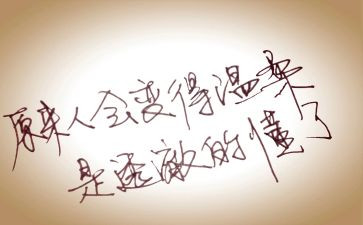 原来人会变得温柔
是透澈的懂了